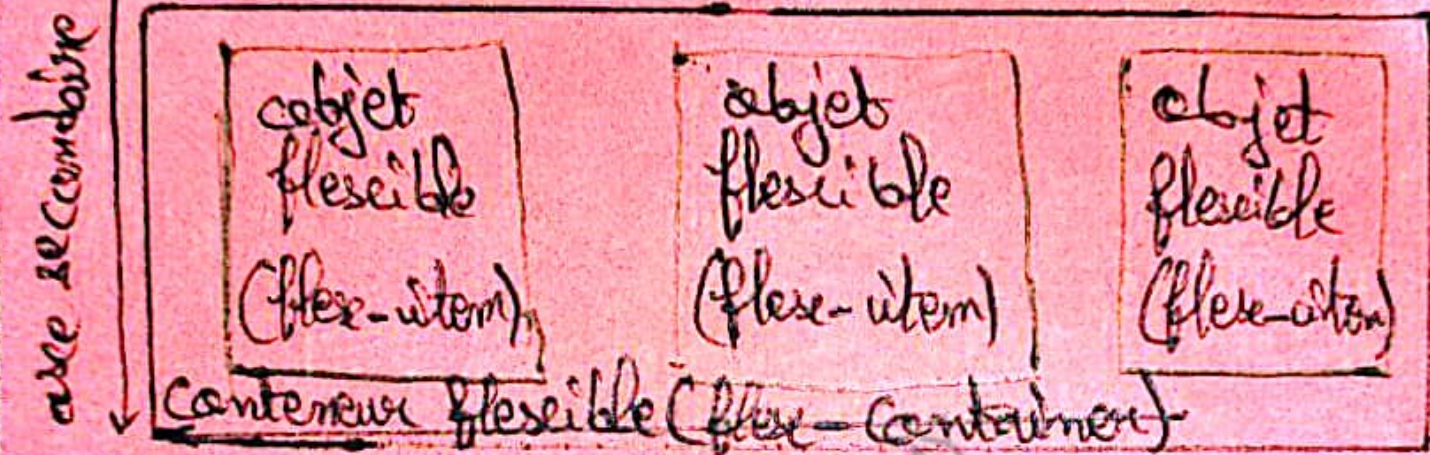 axe secondaire
objet
flexible
(flex-item)
objet
flexible
(flex-item)
objet
flexible
(flex-item)
conteneur flexible (flex-container)